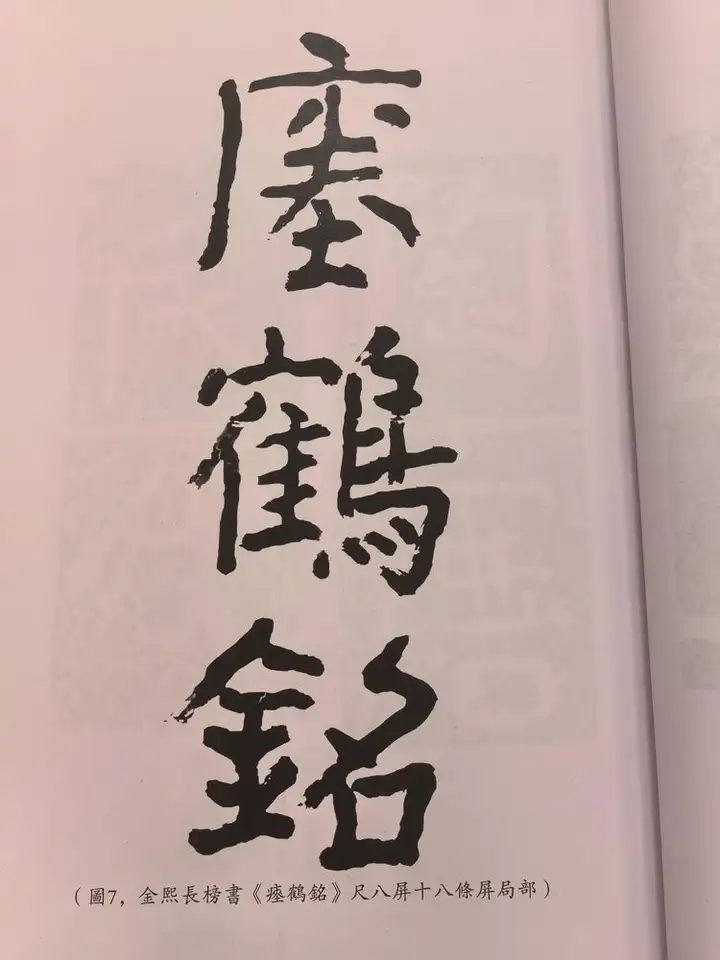 瘞
鶴
銘
（圖7，金熙長榜書《瘞鶴銘》尺八屏十八條屏局部）